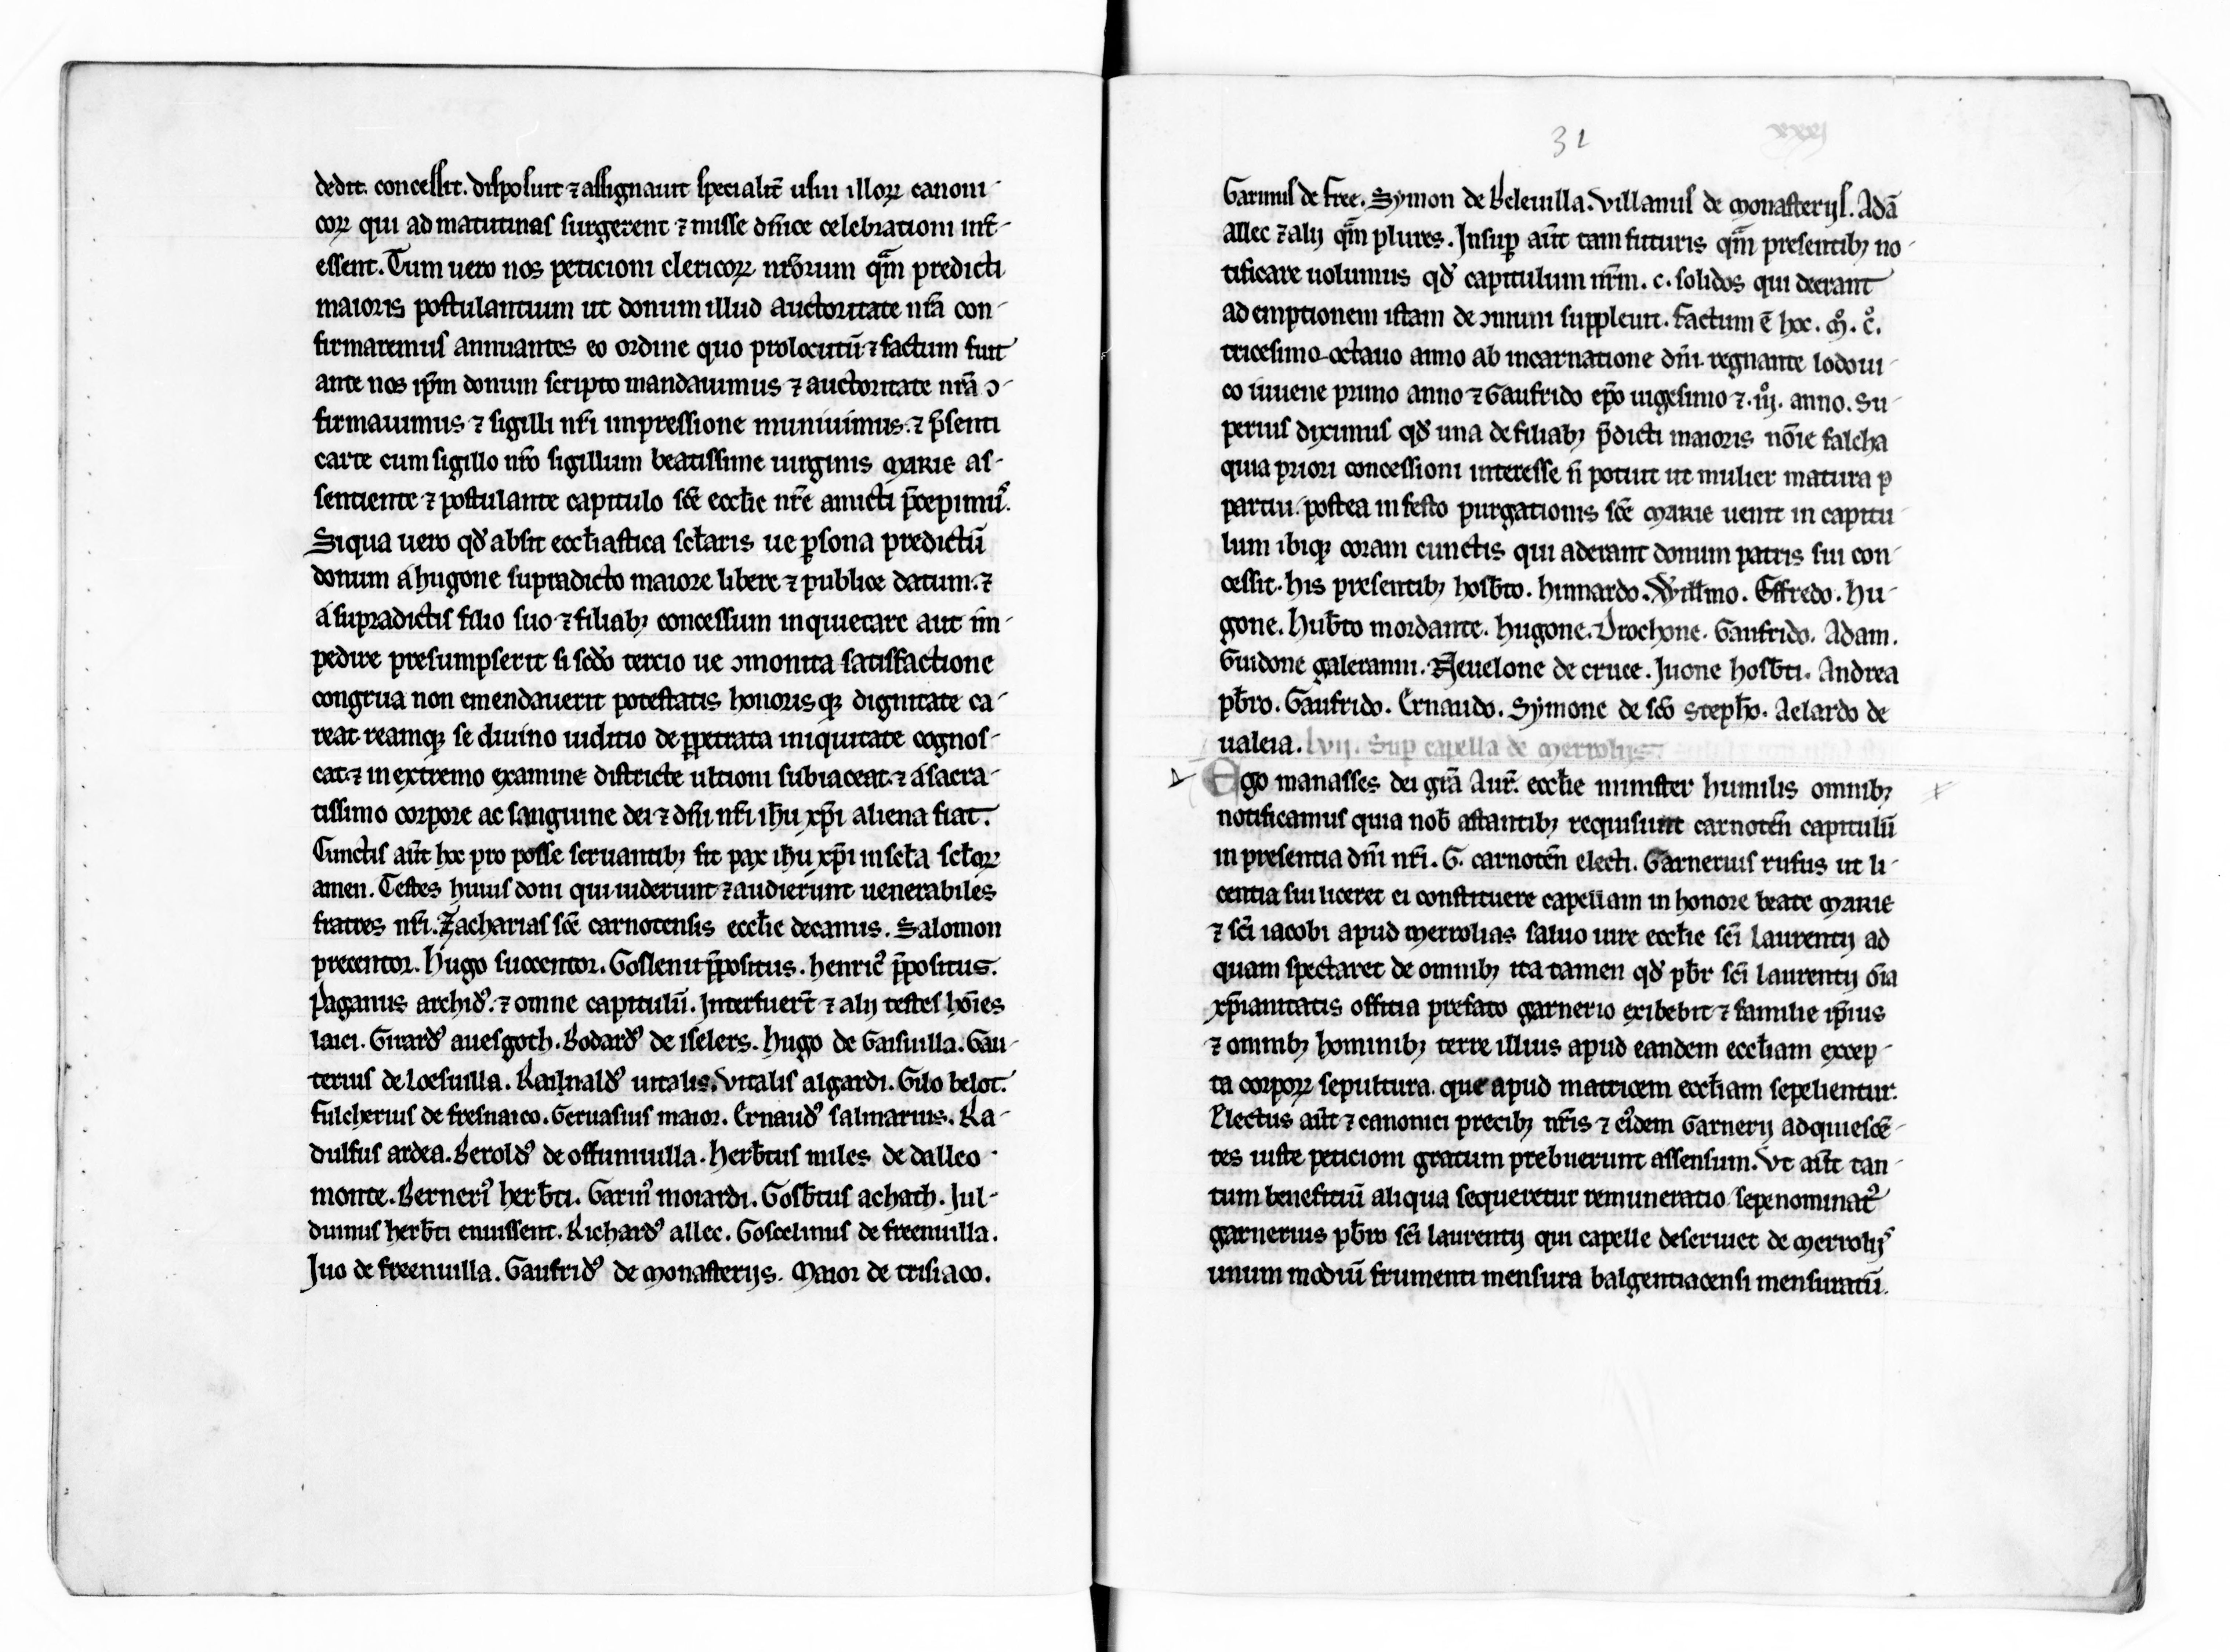 dedit. concessit. disposuit ⁊ assignauit specialit̄ usui illoꝝ canoni-
coꝝ qui ad matutinas surgerent ⁊ misse dn̄ice celebrationi int̄-
essent. Tum uero nos peticioni clericoꝝ nr̄orum qm̄ predicti
maioris postulantium ut donum illud auctoritate nr̄a con-
firmaremus annuantes eo ordine quo prolocutū ⁊ factum fuit
ante nos ip̄m donum scripto mandauimus ⁊ auctoritate nr̄a ↄ-
firmauimus ⁊ sigilli nr̄i inpressione muniuimus. ⁊ p̄senti
carte cum sigillo nr̄o sigillum beatissime uirginis MARIE as-
sentiente ⁊ postulante capitulo sc̄e eccl̄ie nr̄e amicti p̄cepimꝰ.
Siqua uero qd̄ absit eccl̄iastica scl̄aris ue ꝑsona predictū
donum a hugone supradicto maiore libere ⁊ publice datum. ⁊
a supradictis filio suo ⁊ filiabꝫ concessum inquietare aut im-
pedire presumpserit si scd̄o tercio ue ↄmonita satisfactione
congrua non emendauerit potestatis honorisqꝫ dignitate ca-
reat reamqꝫ se diuino iuditio de ꝑpetrata iniquitate cognos-
cat. ⁊ in extremo examine districte ultioni subiaceat. ⁊ a sacra-
tissimo corpore ac sanguine dei ⁊ dn̄i nr̄i ih̄u xp̄i aliena fiat.
Cunctis aūt hoc pro posse seruantibꝫ sit pax ih̄u xp̄i in scl̄a scl̄oꝝ
amen. Testes huius doni qui uiderunt ⁊ audierunt uenerabiles
fratres nr̄i. Zacharias sc̄e carnotensis eccl̄ie decanus. Salomon
precentor. Hugo succentor. Goslenꝰ p̄positus. henricꝰ p̄positus.
Paganus archidꝰ. ⁊ omne capitulū. Interfuer̄t ⁊ alij testes hōies
laici. Girardꝰ auesgoth. Bodardꝰ de iselers. Hugo de Gaisuilla. Gau-
terius de loesuilla. Rainaldꝰ uitalis. Vitalis algardi. Gilo belot.
fulcherius de fresnaico. Geruasius maior. Ernaudꝰ salmarius. Ra-
dulfus ardea. Beroldꝰ de offunuilla. Herb̄tus miles de dalleo-
monte. Bernerꝰ herb̄ti. Garinꝰ moiardi. Gosb̄tus achath. Jul-
duinus herb̄ti enuissent. Richardꝰ allec. Goscelinus de freenuilla.
Juo de freenuilla. Gaufridꝰ de Monasterijs. Maior de trisiaco.
31
xxxj
Garinus de free. Symon de Beleuilla. Villanus de Monasterijs. Adā
allec ⁊ alij qm̄ plures. Insuꝑ aūt tam futuris qm̄ presentibꝫ no-
tificare uolumus qd̄ capitulum nr̄m. c. solidos qui deerant
ad emptionem istam de ↄmuni suppleuit. factum ē hoc. mͦ. cͦ.
tricesimo octauo anno ab incarnatione dn̄i. regnante lodoui-
co iuuene primo anno ⁊ Gaufrido ep̄o uigesimo ⁊. iijͦ. anno. Su-
perius diximus qd̄ una de filiabꝫ p̄dicti maioris nōie falcha
quia priori concessioni interesse n̄ potuit ut mulier matura ꝑ
partui. postea in festo purgationis sc̄e MARIE uenit in capitu-
lum ibiqꝫ coram cunctis qui aderant donum patris sui con-
cessit. his presentibꝫ hosb̄to. hunardo. Will̄mo. Effredo. Hu-
gone. Hub̄to mordante. hugone. Drochone. Gaufrido. Adam.
Guidone galeranni. Aeuelone de cruce. Juone hosb̄ti. Andrea
pb̄ro. Gaufrido. Ernaudo. Symone de sc̄o Steph̄o. Aelardo de
ualeia. lvij. Sup capella de Merrolijs.
Ego manasses dei gr̄a Aur̄. eccl̄ie minister humilis omnibꝫ
notificamus quia nob̄ astantibꝫ requisiuit carnoten̄ capitulū
in presentia dn̄i nr̄i. G. carnoten̄ electi. Garnerius rufus ut li-
centia sui liceret ei constituere capellam in honore beate MARIE
⁊ sc̄i iacobi apud Merrolias saluo iure eccl̄ie sc̄i laurentij ad
quam spectaret de omnibꝫ ita tamen qd̄ pb̄r sc̄i laurentij oīa
xp̄ianitatis offitia prefato garnerio exibebit ⁊ familie ip̄ius
⁊ omnibꝫ hominibꝫ terre illius apud eandem eccl̄iam excep-
ta corpoꝝ sepultura. que apud matricem eccl̄iam sepelientur.
Electus aūt ⁊ canonici precibꝫ nr̄is ⁊ eꝰdem Garnerij adquiescē-
tes iuste peticioni gratum prebuerunt assensum. Vt aūt tan-
tum benefitiū aliqua sequeretur remuneratio sepenominatꝰ
garnerius pb̄ro sc̄i laurentij qui capelle deseruiet de Merrolijs
unum modiū frumenti mensura balgentiacensi mensuratū.